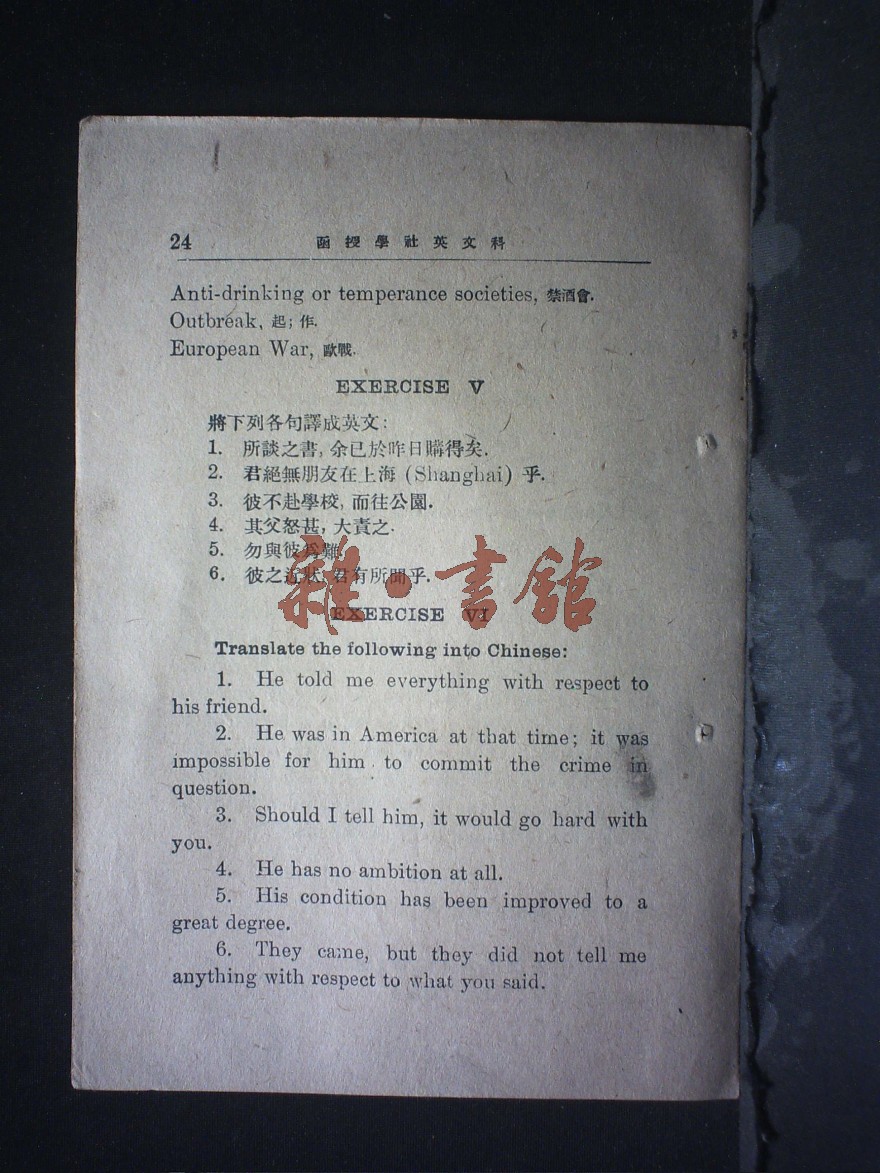 24 函授學社英文科
Anti-drinking or temperance societies, 禁酒會.
Outbreak, 起; 作.
European War, 歐戰.
EXERCISE V
將下列各句譯成英文:
1. 所談之書, 余已於昨日購得矣.
2. 君絕無朋友在上海 (Shanghai) 乎.
3. 彼不赴學校, 而往公園.
4. 其父怒甚, 大責之.
5. 勿與彼爲難.
6. 彼之近狀, 君有所聞乎.
雜·書館
EXERCISE VI
Translate the following into Chinese:
1. He told me everything with respect to
his friend.
2. He was in America at that time; it was
impossible for him to commit the crime in
question.
3. Should I tell him, it would go hard with
you.
4. He has no ambition at all.
5. His condition has been improved to a
great degree.
6. They came, but they did not tell me
anything with respect to what you said.